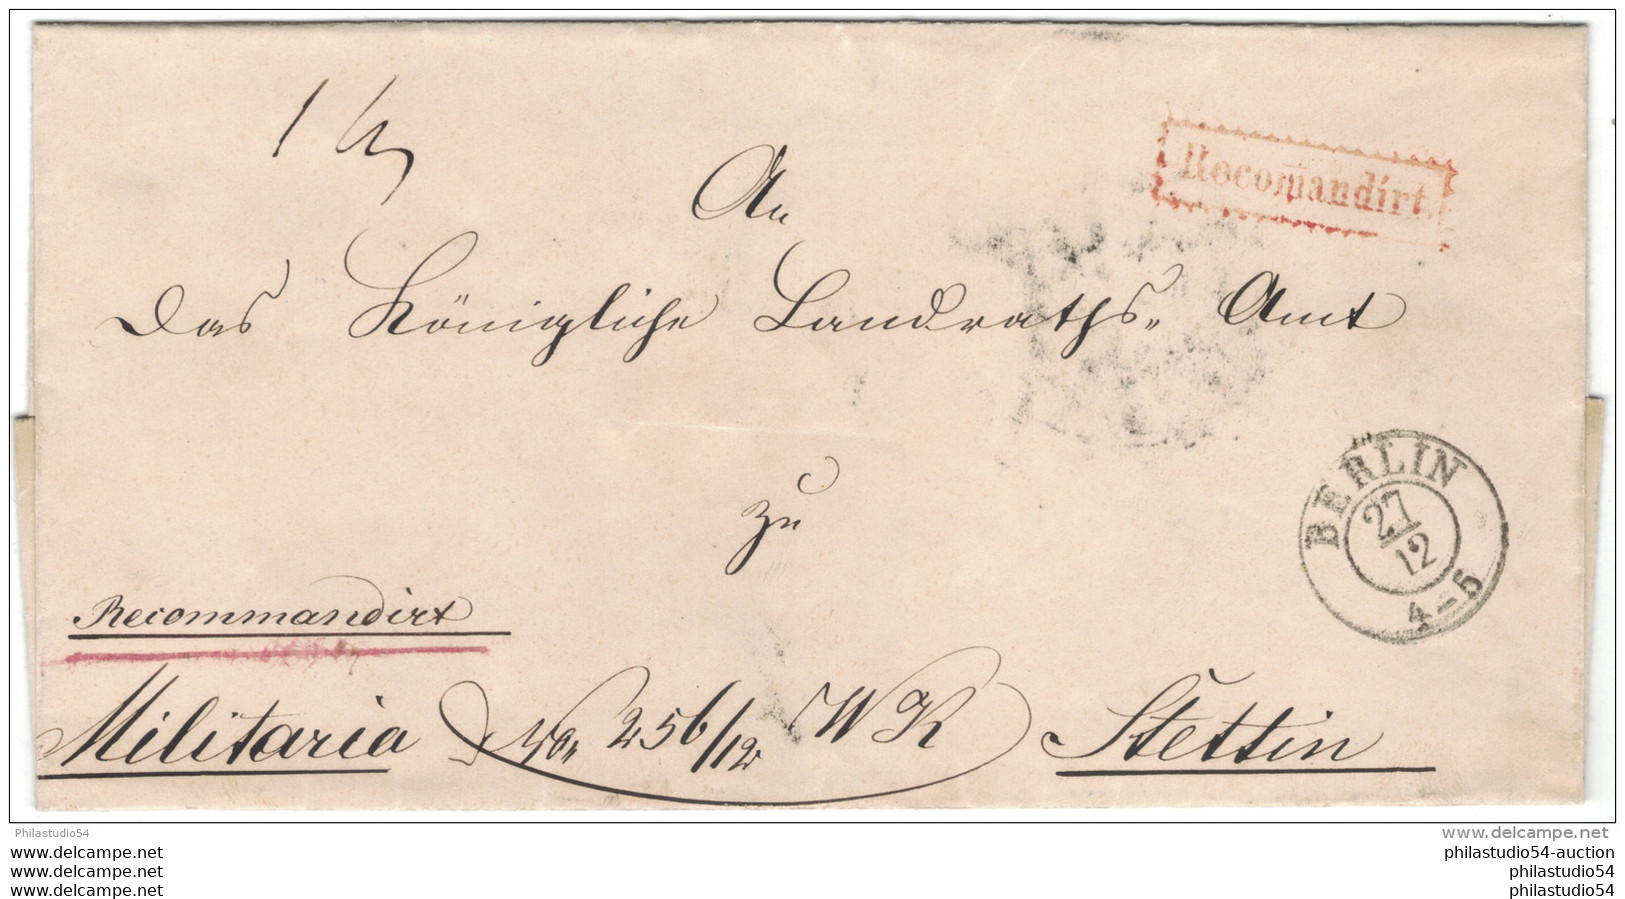 An
Recomandirt
Das Königliche Landraths- Amt
zu
BERLIN
27/12
4-5
Recommandirt
Militaria No. 256/12 WK Stettin
Philastudio54
www.delcampe.net
www.delcampe.net
www.delcampe.net
www.delcampe.net
philastudio54-auction
philastudio54
philastudio54